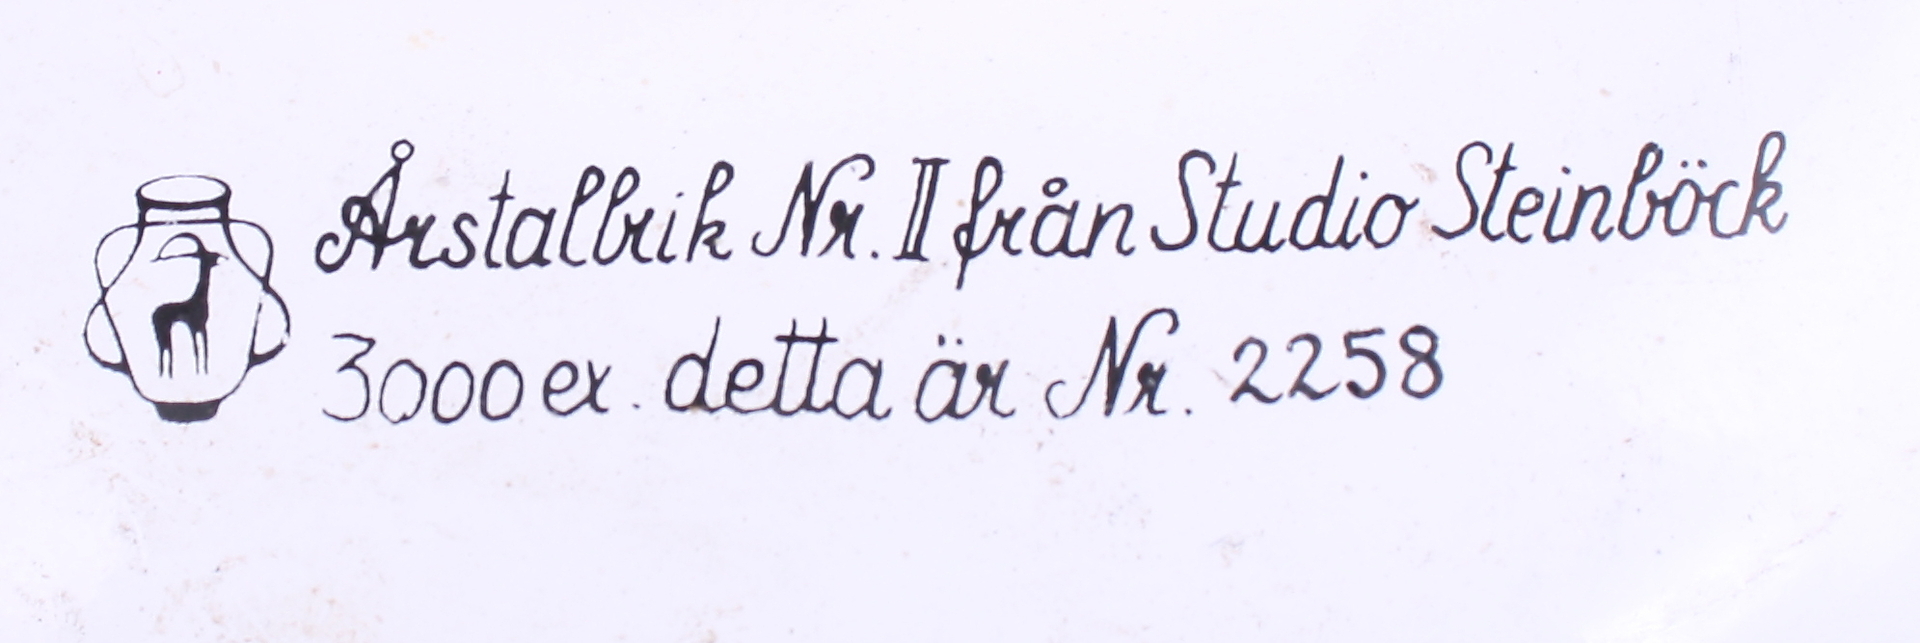 Årstallrik Nr. II från Studio Steinböck
3000 ex. detta är Nr. 2258